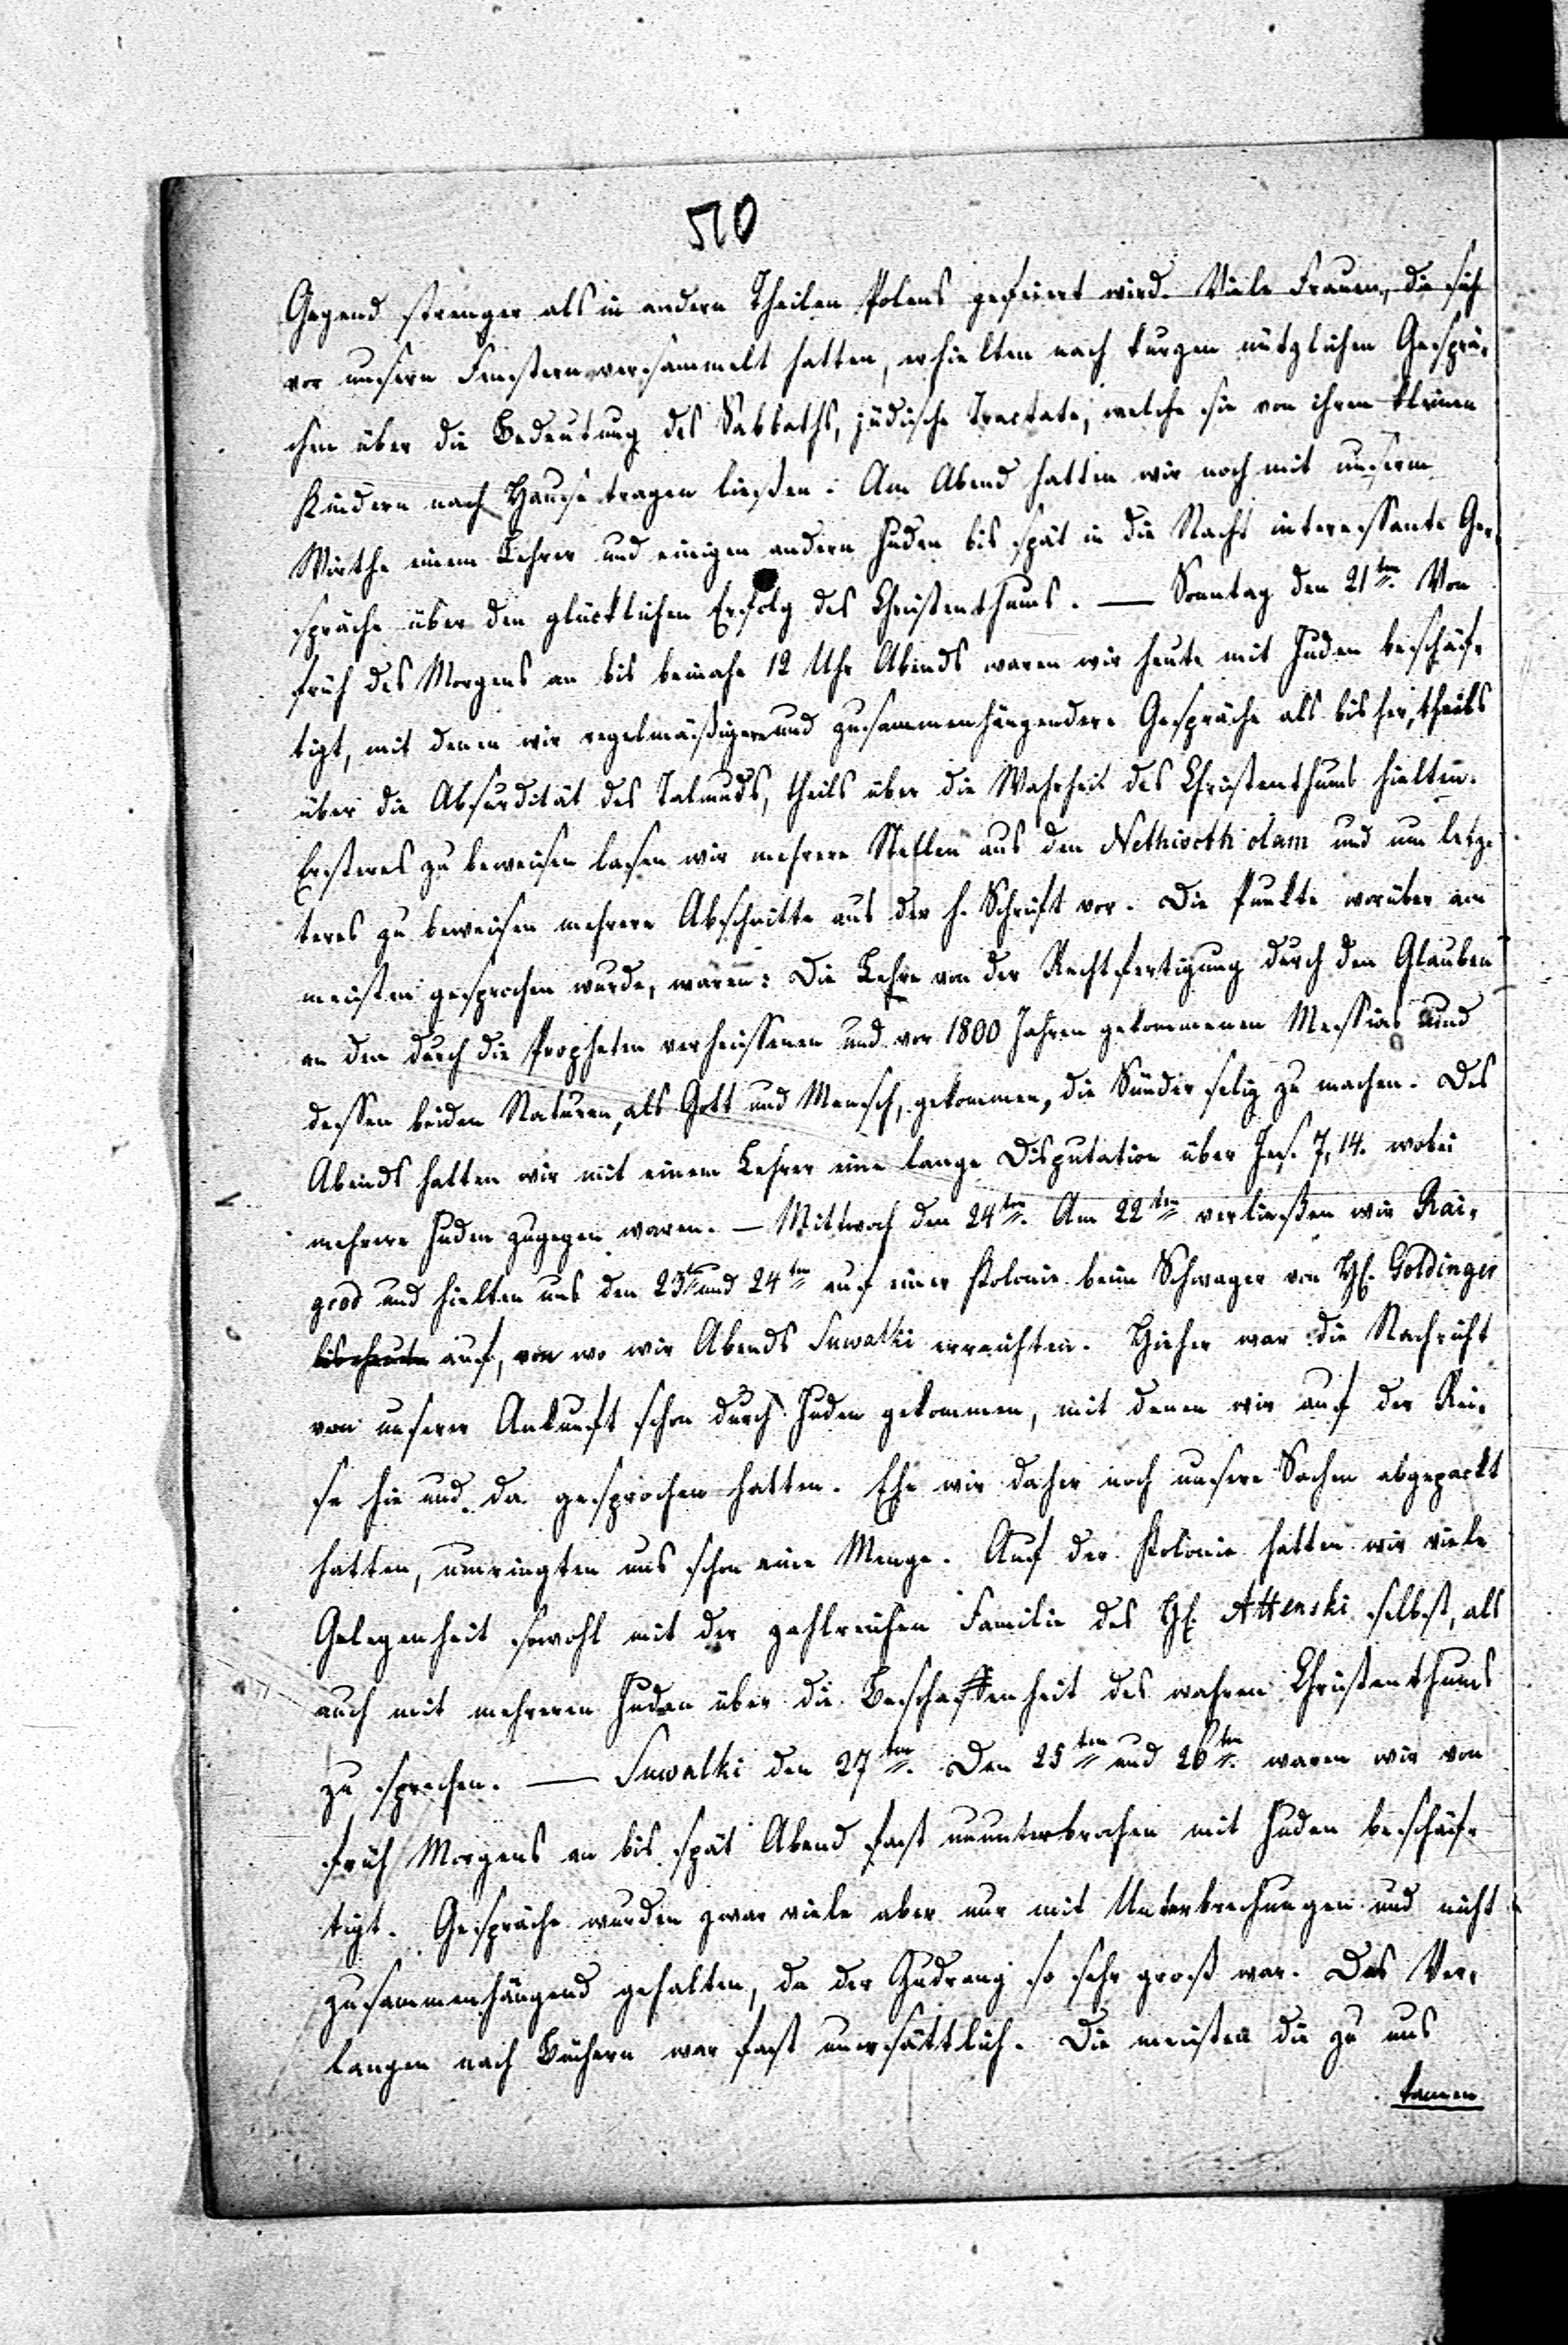 510
Gegend strenger als in andern Theilen Polens gefeiert wird. Viele Frauen, die sich
vor unsern Fenstern versammelt hatten, erhielten nach kurzen nützlichen Gesprä-
chen über die Bedeutung des Sabbaths, jüdische Tractate, welche sie von ihren kleinen
Kindern nach Hause tragen ließen. Am Abend hatten wir noch mit unserm
Wirthe einem Lehrer und einigen andern Juden bis spät in die Nacht interessante Ge-
spräche über den glücklichen Erfolg des Christenthums. — Sonntag den 21ten. Von
früh des Morgens an bis beinahe 12 Uhr Abends waren wir heute mit Juden beschäf-
tigt, mit denen wir regelmäßigere und zusammenhängendere Gespräche als bisher, theils
über die Absurdität des Talmuds, theils über die Wahrheit des Christenthums hielten.
Ersteres zu beweisen lasen wir mehrere Stellen aus den Nethivoth olam und um letz-
teres zu beweisen mehrere Abschnitte aus der h. Schrift vor. Die Punkte worüber am
meisten gesprochen wurde, waren: Die Lehre von der Rechtfertigung durch den Glauben
an den durch die Propheten verheissenen und vor 1800 Jahren gekommenen Messias und
dessen beiden Naturen, als Gott und Mensch, gekommen, die Sünder selig zu machen. Des
Abends hatten wir mit einem Lehrer eine lange Disputation über Jes. 7, 14. wobei
mehrere Juden zugegen waren. — Mittwoch den 24ten. Am 22ten verließen wir Rai-
grod und hielten uns den 23ten und 24ten auf einer Kolonie beim Schwager von H. Goldinger
bis heute auf, von wo wir Abends Suwalki erreichten. Hieher war die Nachricht
von unserer Ankunft schon durch Juden gekommen, mit denen wir auf der Rei-
se hie und da gesprochen hatten. Ehe wir daher noch unsere Sachen abgepackt
hatten, umringten uns schon eine Menge. Auf der Kolonie hatten wir viele
Gelegenheit sowohl mit der zahlreichen Familie des H. Attenski selbst, als
auch mit mehreren Juden über die Beschaffenheit des wahren Christenthums
zu sprechen. — Suwalki den 27ten. Den 25ten und 26ten waren wir von
früh Morgens an bis spät Abend fast ununterbrochen mit Juden beschäf-
tigt. Gespräche wurden zwar viele aber nur mit Unterbrechungen und nicht
zusammenhängend gehalten, da der Zudrang so sehr groß war. Das Ver-
langen nach Büchern war fast unersättlich. Die meisten die zu uns
kamen